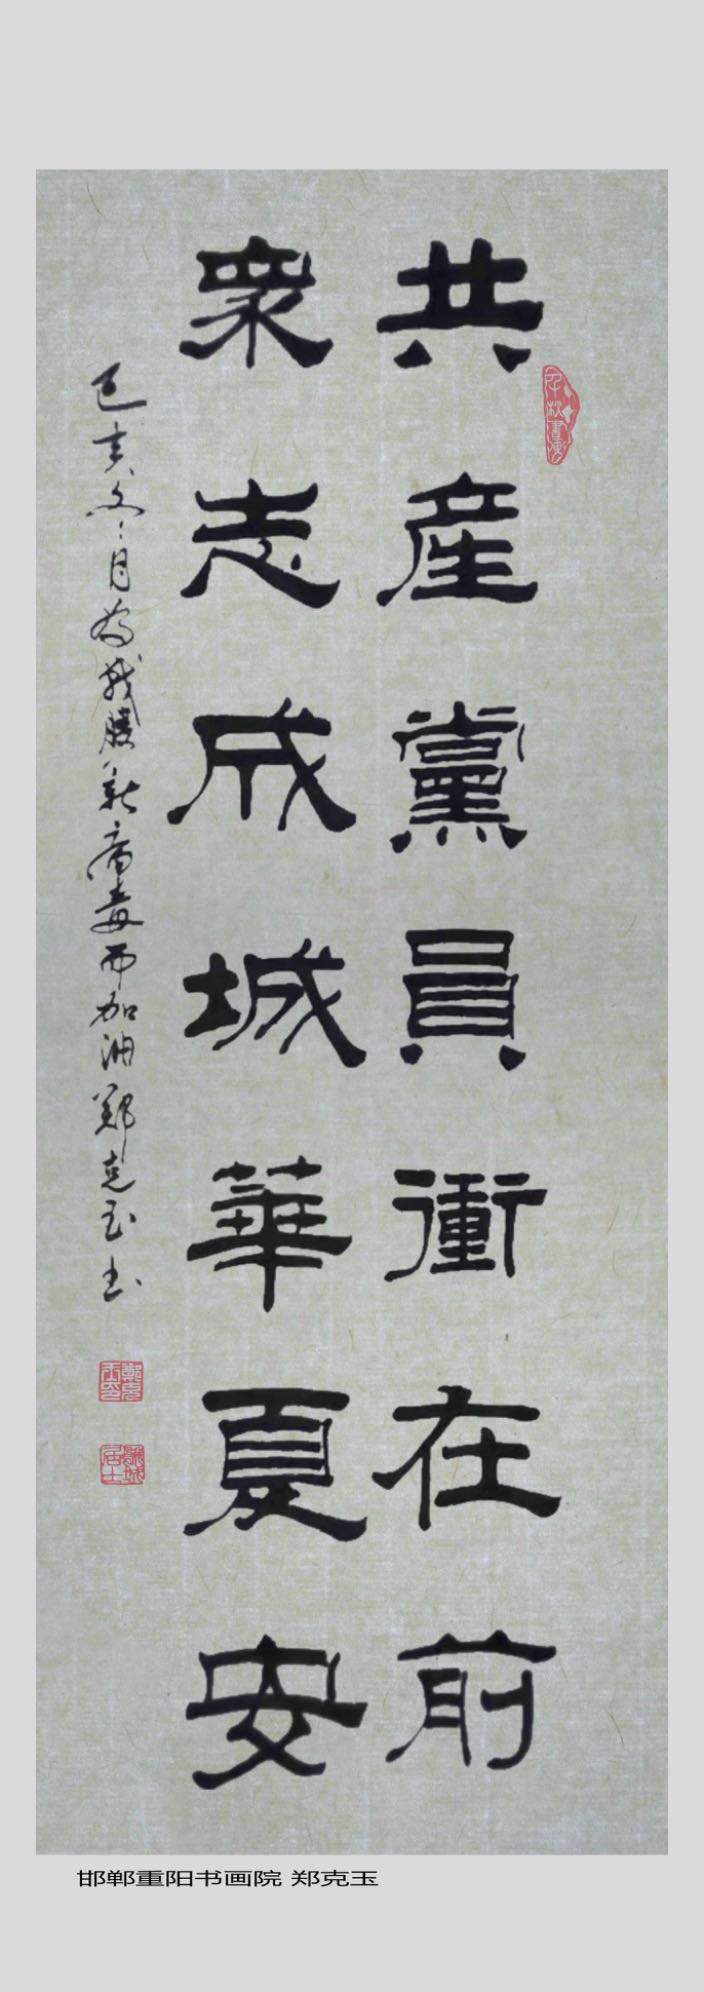 共産黨員衝在前
衆志成城華夏安
己亥冬月为战勝新病毒而加油郑克玉书
邯郸重阳书画院 郑克玉